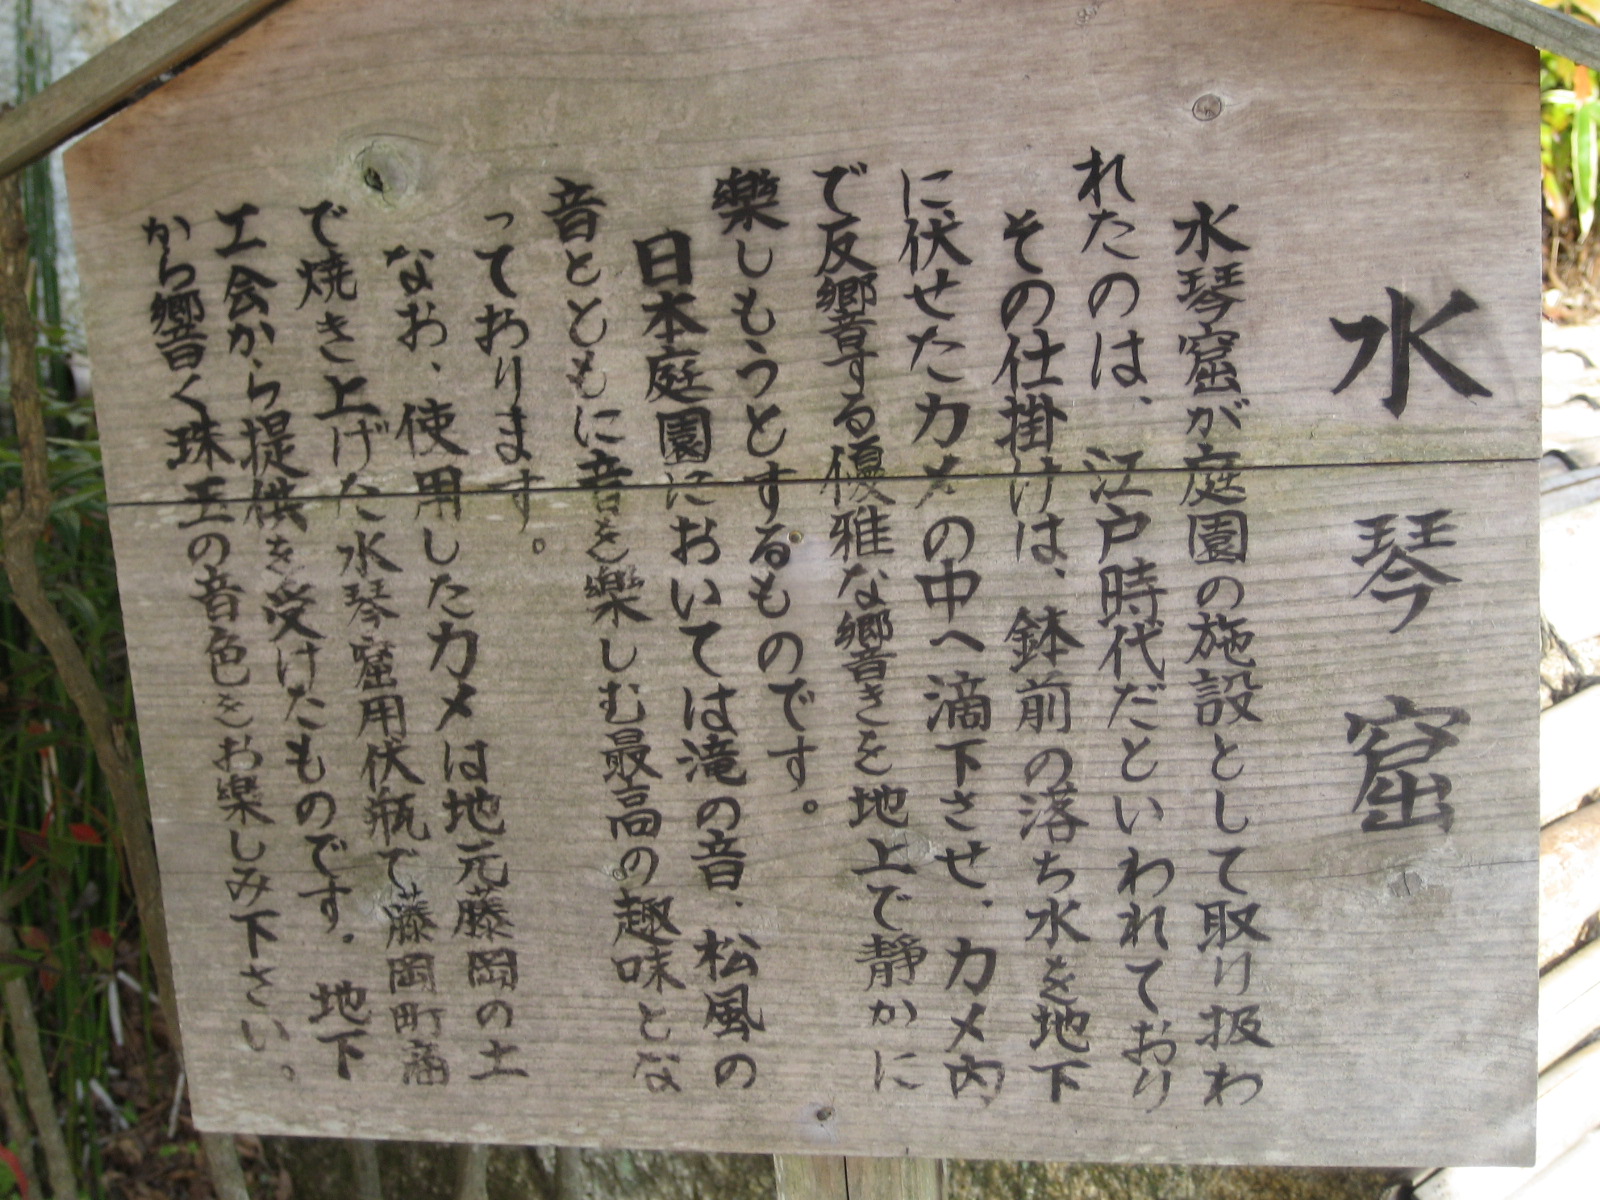 水琴窟
水琴窟が庭園の施設として取り扱わ
れたのは、江戸時代だといわれており
その仕掛けは、鉢前の落ち水を地下
に伏せたカメの中へ滴下させ、カメ内
で反響する優雅な響きを地上で静かに
楽しもうとするものです。
日本庭園においては滝の音、松風の
音とともに音を楽しむ最高の趣味とな
っております。
なお、使用したカメは地元藤岡の土
で焼き上げた水琴窟用伏瓶で藤岡町商
工会から提供を受けたものです。地下
から響く珠玉の音色をお楽しみ下さい。